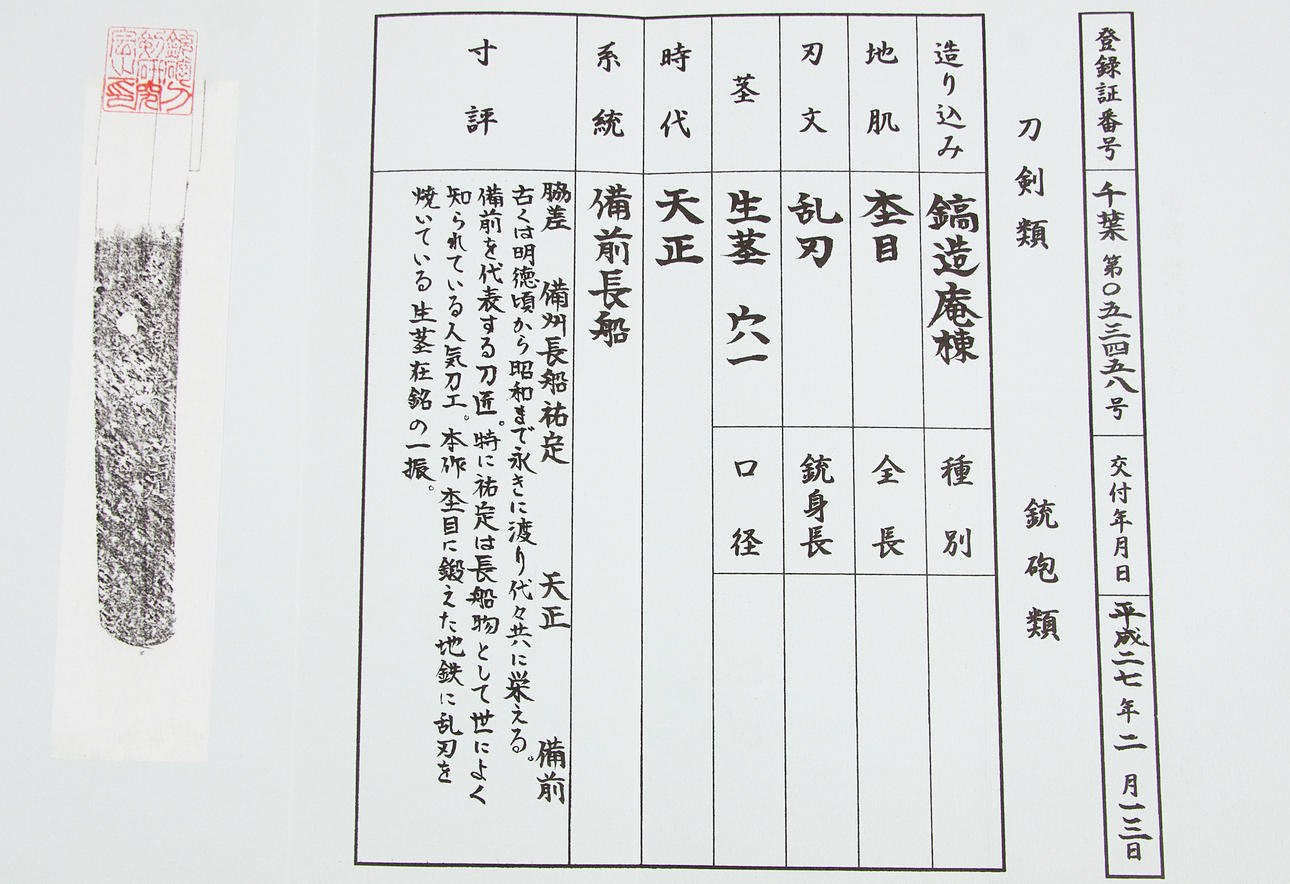 登録証番号 千葉 第〇五三四五八号 交付年月日 平成二七年二月一三日
刀剣類 銃砲類
造り込み 鎬造庵棟 種別
地肌 杢目 全長
刃文 乱刃 銃身長
茎 生茎 穴一 口径
時代 天正
系統 備前長船
寸評 脇差 備州長船祐定 天正 備前
古くは明徳頃から昭和まで永きに渡り代々共に栄える。
備前を代表する刀匠。特に祐定は長船物として世によく
知られている人気刀工。本作杢目に鍛えた地鉄に乱刃を
焼いている 生茎在銘の一振。